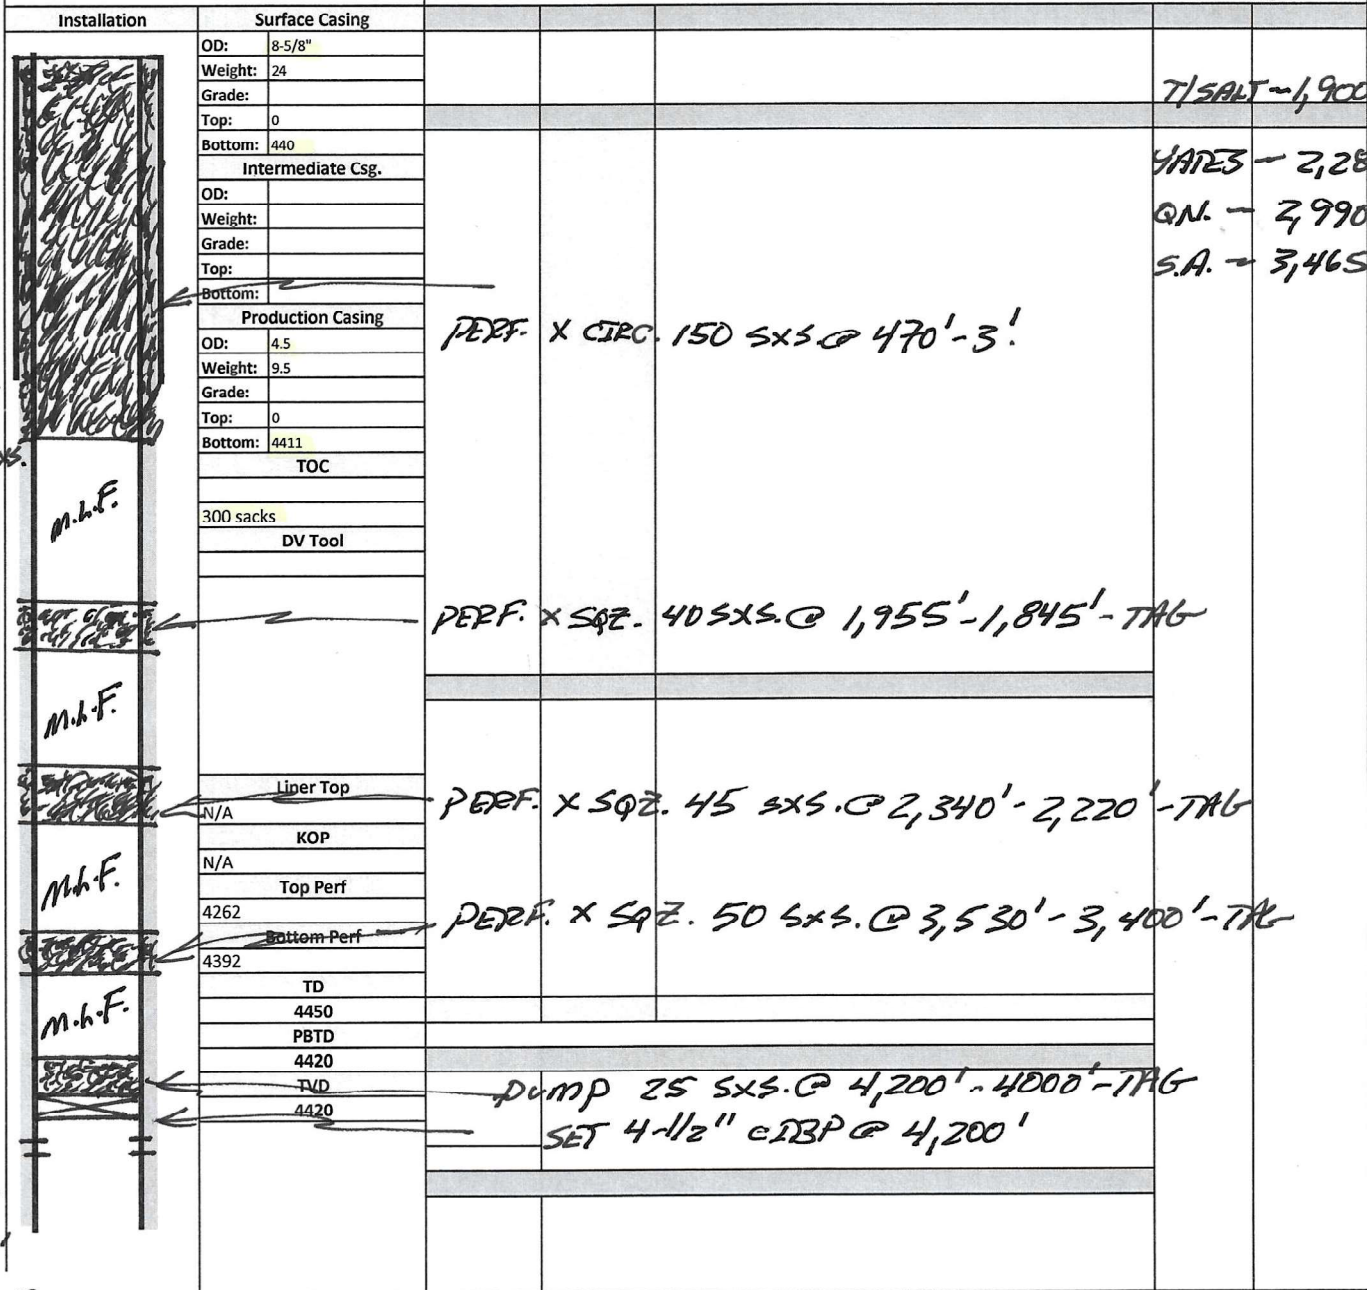 Installation
Surface Casing
OD: 8-5/8"
Weight: 24
Grade:
Top: 0
Bottom: 440
Intermediate Csg.
OD:
Weight:
Grade:
Top:
Bottom:
Production Casing
OD: 4.5
Weight: 9.5
Grade:
Top: 0
Bottom: 4411
TOC
300 sacks
DV Tool
Liner Top
N/A
KOP
N/A
Top Perf
4262
Bottom Perf
4392
TD
4450
PBTD
4420
TVD
4420
M.L.F.
M.L.F.
M.L.F.
M.L.F.
T/SALT - 1,900
- 2,28
QN. - 2,990
S.A. - 3,465
PERF. X CIRC. 150 SXS. @ 470'-3'.
PERF. X SQZ. 40 SXS. @ 1,955'-1,845'-TAG
PERF. X SQZ. 45 SXS. @ 2,340'-2,220'-TAG
PERF. X SQZ. 50 SXS. @ 3,530'-3,400'-TAG
PUMP 25 SXS. @ 4,200'-4000'-TAG
SET 4-1/2" CIBP @ 4,200'